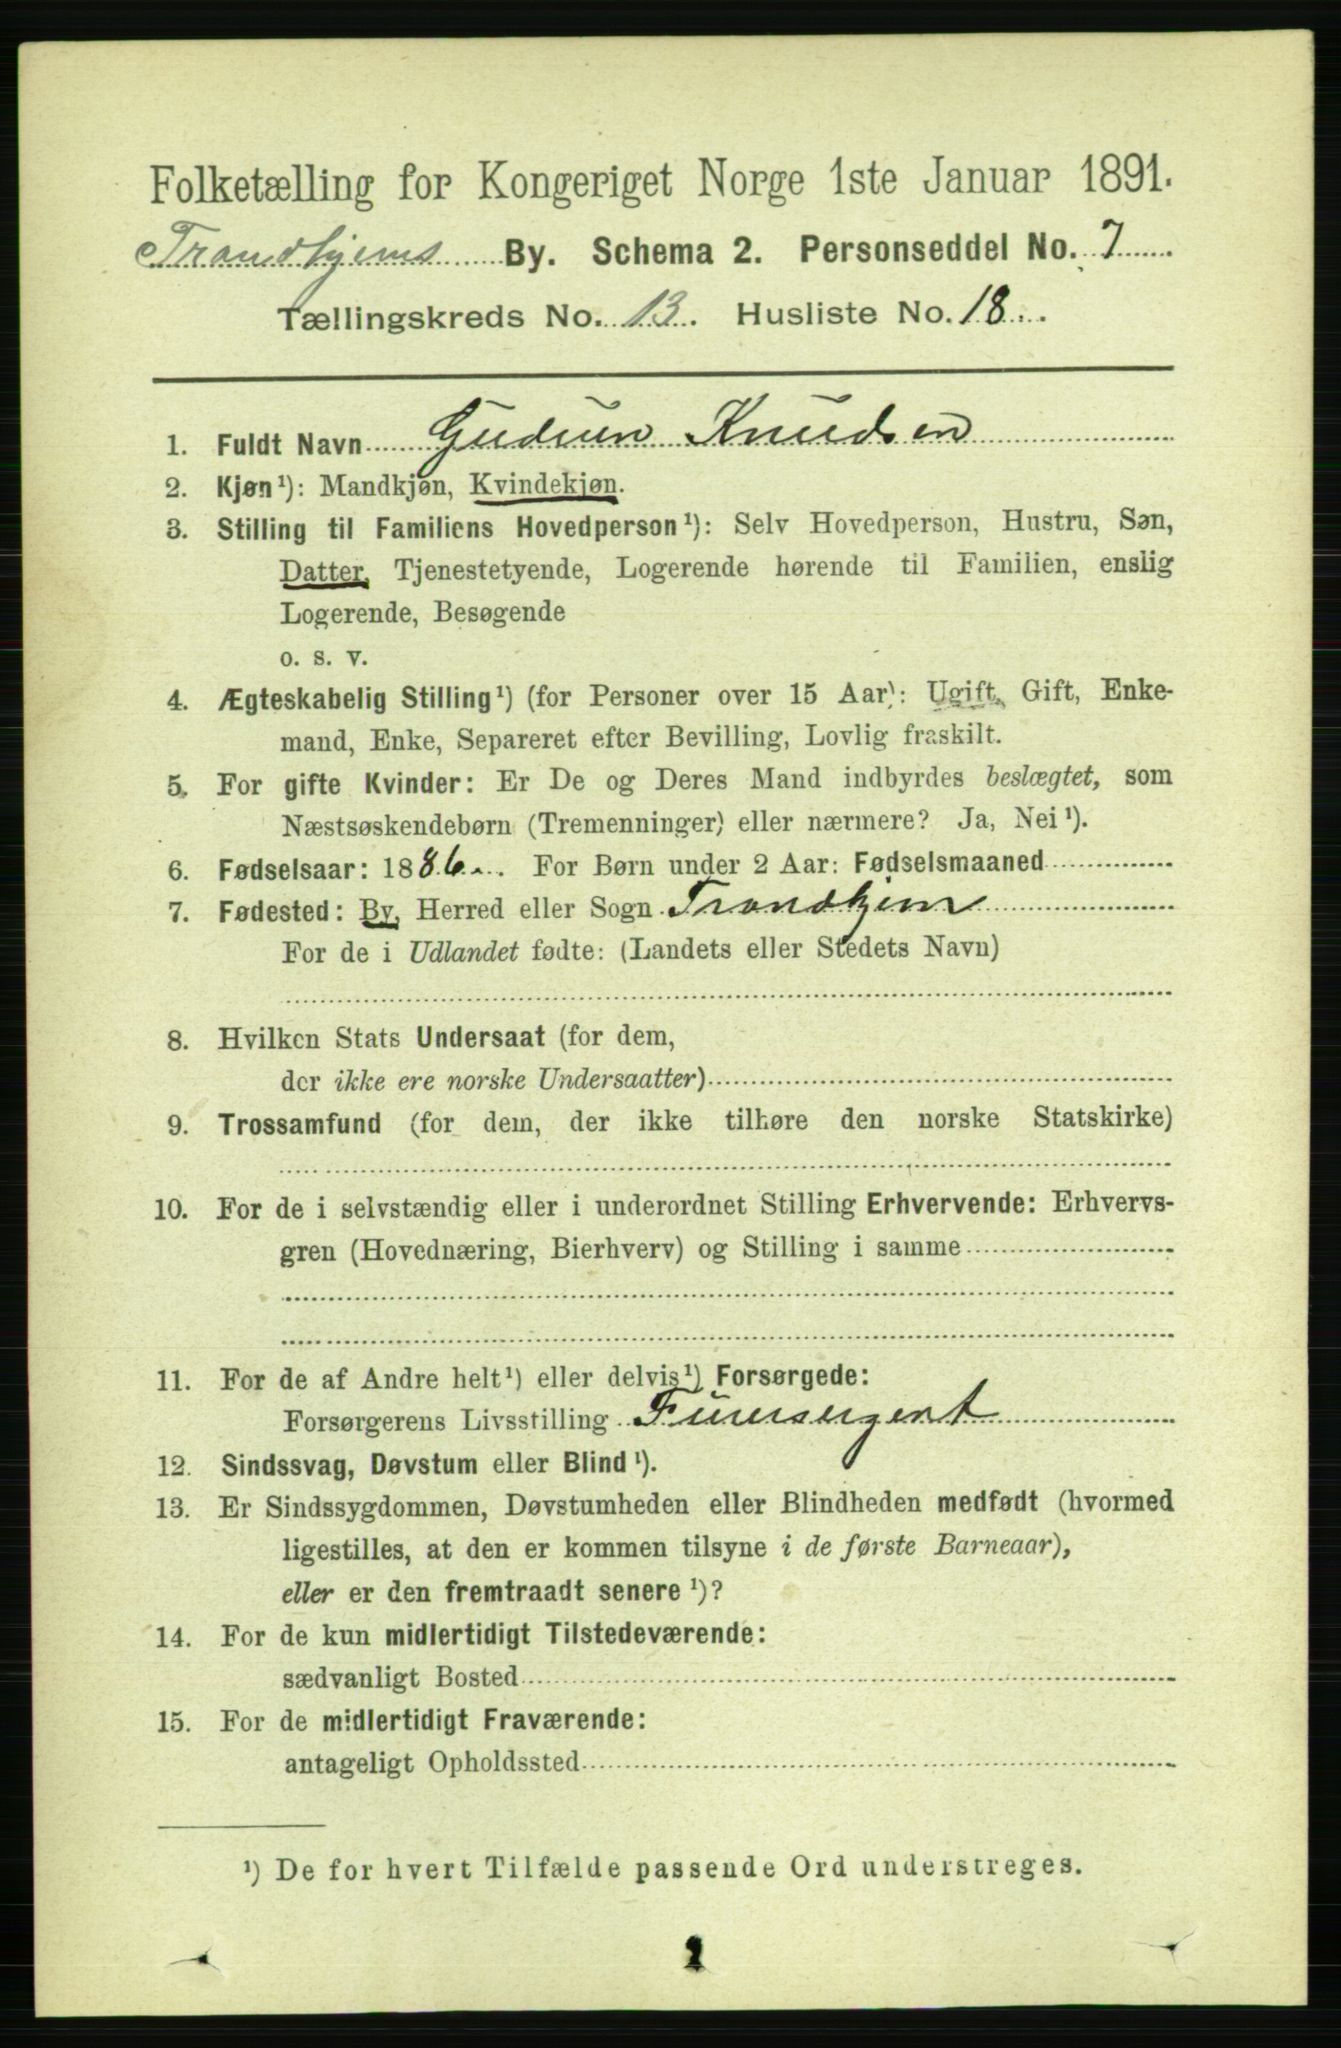 Folketælling for Kongeriget Norge 1ste Januar 1891.
Trondhjems By. Schema 2. Personseddel No. 7
Tællingskreds No. 13. Husliste No. 18.
1. Fuldt Navn Gudrun Knudsen
2. Kjøn¹): Mandkjøn, Kvindekjøn.
3. Stilling til Familiens Hovedperson¹): Selv Hovedperson, Hustru, Søn,
Datter, Tjenestetyende, Logerende hørende til Familien, enslig
Logerende, Besøgende
o. s. v.
4. Ægteskabelig Stilling¹) (for Personer over 15 Aar): Ugift, Gift, Enke-
mand, Enke, Separeret efter Bevilling, Lovlig fraskilt.
5. For gifte Kvinder: Er De og Deres Mand indbyrdes beslægtet, som
Næstsøskendebørn (Tremenninger) eller nærmere? Ja, Nei¹).
6. Fødselsaar: 1886. For Børn under 2 Aar: Fødselsmaaned
7. Fødested: By, Herred eller Sogn Trondhjem
For de i Udlandet fødte: (Landets eller Stedets Navn)
8. Hvilken Stats Undersaat (for dem,
der ikke ere norske Undersaatter)
9. Trossamfund (for dem, der ikke tilhøre den norske Statskirke)
10. For de i selvstændig eller i underordnet Stilling Erhvervende: Erhvervs-
gren (Hovednæring, Bierhverv) og Stilling i samme
11. For de af Andre helt¹) eller delvis¹) Forsørgede:
Forsørgerens Livsstilling
12. Sindssvag, Døvstum eller Blind¹).
13. Er Sindssygdommen, Døvstumheden eller Blindheden medfødt (hvormed
ligestilles, at den er kommen tilsyne i de første Barneaar),
eller er den fremtraadt senere¹)?
14. For de kun midlertidigt Tilstedeværende:
sædvanligt Bosted
15. For de midlertidigt Fraværende:
antageligt Opholdssted
¹) De for hvert Tilfælde passende Ord understreges.